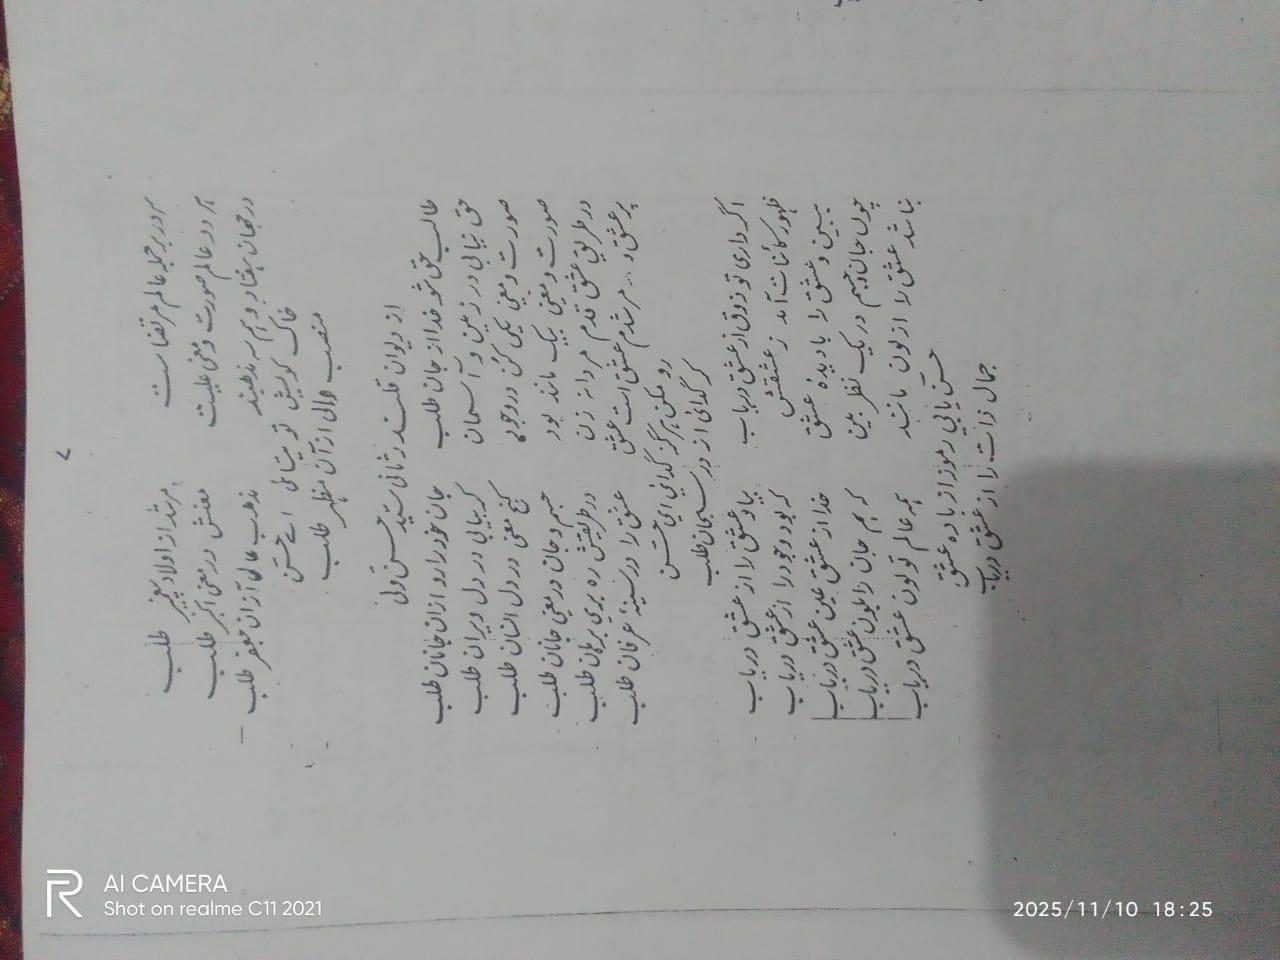 ۷
سرور بر جمله عالم مرتضاست مرشد از اولاد پیغمبر طلب
هر دو عالم صورت و معنی علیست معنش در معنی اکبر طلب
در جهان هفتاد و هم سه مذهبند مذهب عالی از آن جعفر طلب
خاک کویش تو بیتابی اے حسن
منصب والی از آن مظهر طلب
از دیوان قلندر ثانی سید حسن ولی
طالب حق شو خدا از جان طلب جان خود را رو از آن جانان طلب
حق نیابی در زمین و آسمان گر بیابی در دل ویران طلب
صورت و معنی یکی کن در وجود گنج معنی در دل انسان طلب
صورت و معنی یک ماند بود جسم و جان در معنی جانان طلب
در طریق عشق قدم مردانه زن در طریقش ره بری برهان طلب
پیر عشق و مرشدم عشق است عشق عشق را در سینهٔ عرفان طلب
رو مکن هرگز گدائی ای حسن
گر گدائی از در سبحان طلب
اگر داری تو ذوق از عشق دریاب بیا و عشق را از عشق دریاب
ظهور کائنات آمد ز عشقش گر بود وجود را از عشق دریاب
ببین و عشق را با دیدهٔ عشق خدا از عشق عین عشق دریاب
چون جان و جسم در یک نظر بین که هم جان را بلون عشق دریاب
نباشد عشق را از لون مانند همه عالم تو لون عشق دریاب
حسن یابی رموز از باده عشق
جمال ذات را از عشق دریاب